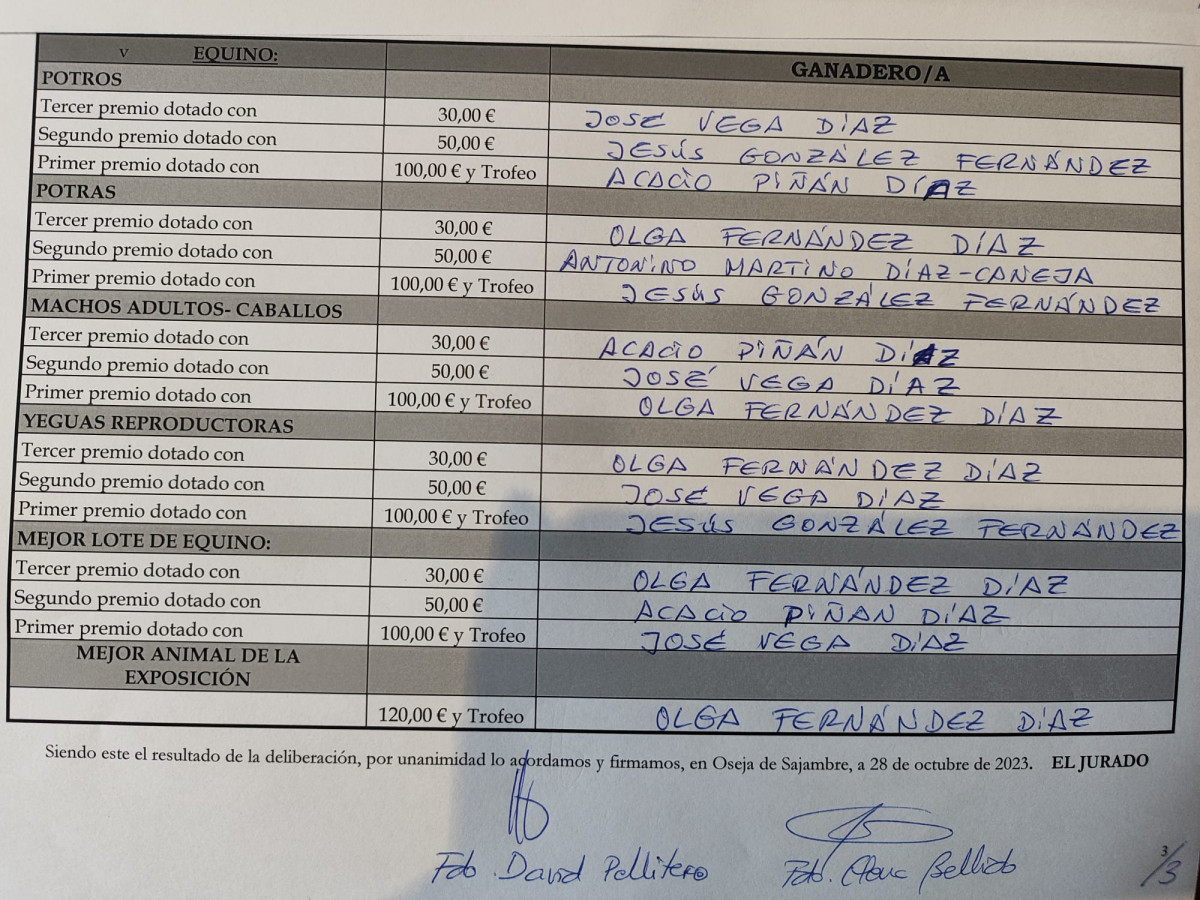 v EQUINO: GANADERO/A
POTROS
Tercer premio dotado con 30,00 € JOSE VEGA DÍAZ
Segundo premio dotado con 50,00 € JESÚS GONZÁLEZ FERNÁNDEZ
Primer premio dotado con 100,00 € y Trofeo ACACIO PIÑÁN DÍAZ
POTRAS
Tercer premio dotado con 30,00 € OLGA FERNÁNDEZ DÍAZ
Segundo premio dotado con 50,00 € ANTONINO MARTINO DÍAZ-CANEJA
Primer premio dotado con 100,00 € y Trofeo JESÚS GONZÁLEZ FERNÁNDEZ
MACHOS ADULTOS- CABALLOS
Tercer premio dotado con 30,00 € ACACIO PIÑÁN DÍAZ
Segundo premio dotado con 50,00 € JOSÉ VEGA DÍAZ
Primer premio dotado con 100,00 € y Trofeo OLGA FERNÁNDEZ DÍAZ
YEGUAS REPRODUCTORAS
Tercer premio dotado con 30,00 € OLGA FERNÁNDEZ DÍAZ
Segundo premio dotado con 50,00 € JOSÉ VEGA DÍAZ
Primer premio dotado con 100,00 € y Trofeo JESÚS GONZÁLEZ FERNÁNDEZ
MEJOR LOTE DE EQUINO:
Tercer premio dotado con 30,00 € OLGA FERNÁNDEZ DÍAZ
Segundo premio dotado con 50,00 € ACACIO PIÑAN DÍAZ
Primer premio dotado con 100,00 € y Trofeo JOSÉ VEGA DÍAZ
MEJOR ANIMAL DE LA
EXPOSICIÓN
120,00 € y Trofeo OLGA FERNÁNDEZ DÍAZ
Siendo este el resultado de la deliberación, por unanimidad lo acordamos y firmamos, en Oseja de Sajambre, a 28 de octubre de 2023. EL JURADO
Fdo. David Pellitero Fdo. Bellido
3
3/3